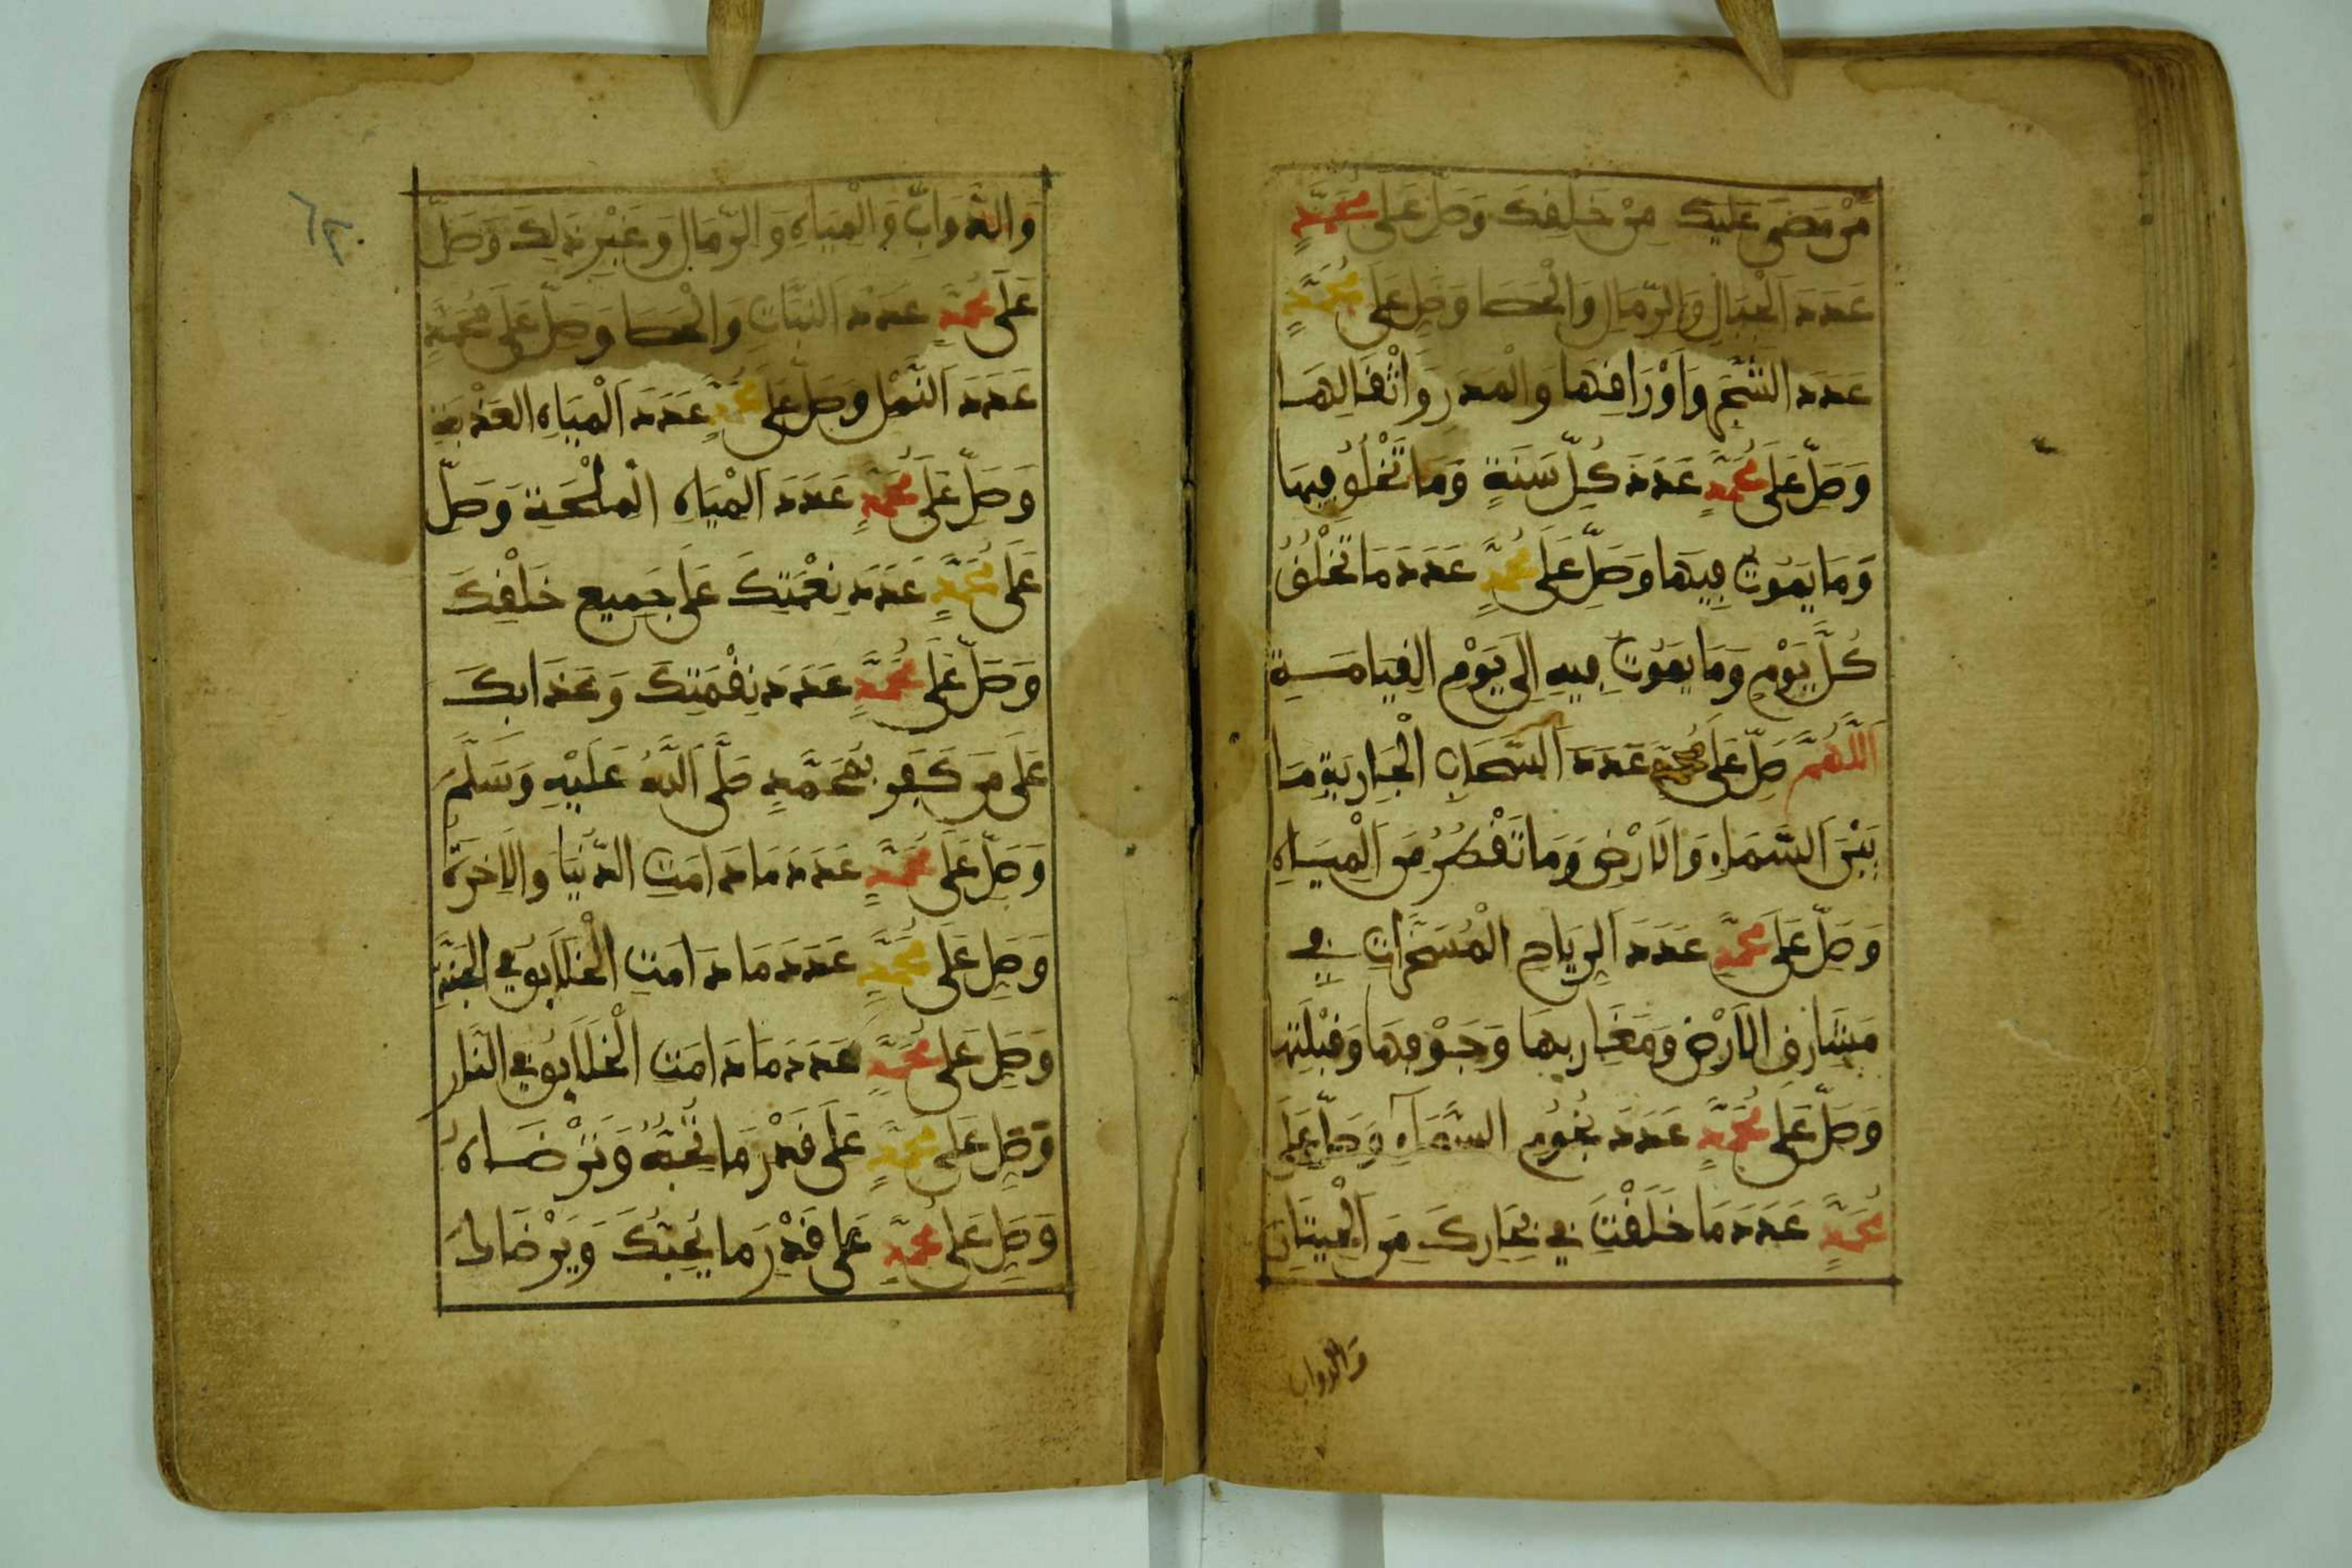 مَنْ مَضَى عَلَيْكَ مِنْ خَلْقِكَ وَصَلِّ عَلَى مُحَمَّدٍ
عَدَدَ الْجِبَالِ وَالرِّمَالِ وَالْحَصَا وَصَلِّ عَلَى مُحَمَّدٍ
عَدَدَ الشَّجَرِ وَأَوْرَاقِهَا وَالْمَدَرِ وَأَثْقَالِهَا
وَصَلِّ عَلَى مُحَمَّدٍ عَدَدَ كُلِّ سَنَةٍ وَمَا تَخْلُقُ فِيهَا
وَمَا يَمُوتُ فِيهَا وَصَلِّ عَلَى مُحَمَّدٍ عَدَدَ مَا تَخْلُقُ
كُلَّ يَوْمٍ وَمَا يَمُوتُ فِيهِ إِلَى يَوْمِ الْقِيَامَةِ
اَللَّهُمَّ صَلِّ عَلَى مُحَمَّدٍ عَدَدَ السَّحَابِ الْجَارِيَةِ مَا
بَيْنَ السَّمَاءِ وَالْأَرْضِ وَمَا تَقْطُرُ مِنَ الْمِيَاهِ
وَصَلِّ عَلَى مُحَمَّدٍ عَدَدَ الرِّيَاحِ الْمُسَخَّرَاتِ فِي
مَشَارِقِ الْأَرْضِ وَمَغَارِبِهَا وَجَوْفِهَا وَقِبْلَتِهَا
وَصَلِّ عَلَى مُحَمَّدٍ عَدَدَ نُجُومِ السَّمَاءِ وَصَلِّ عَلَى
مُحَمَّدٍ عَدَدَ مَا خَلَقْتَ فِي بِحَارِكَ مِنَ الْحِيتَانِ
والدواب
٦٢
وَالدَّوَابِّ وَالْمِيَاهِ وَالرِّمَالِ وَغَيْرِ ذَلِكَ وَصَلِّ
عَلَى مُحَمَّدٍ عَدَدَ النَّبَاتِ وَالْحَصَا وَصَلِّ عَلَى مُحَمَّدٍ
عَدَدَ النَّمْلِ وَصَلِّ عَلَى مُحَمَّدٍ عَدَدَ الْمِيَاهِ الْعَذْبَةِ
وَصَلِّ عَلَى مُحَمَّدٍ عَدَدَ الْمِيَاهِ الْمِلْحَةِ وَصَلِّ
عَلَى مُحَمَّدٍ عَدَدَ نِعْمَتِكَ عَلَى جَمِيعِ خَلْقِكَ
وَصَلِّ عَلَى مُحَمَّدٍ عَدَدَ نِقْمَتِكَ وَعَذَابِكَ
عَلَى مَنْ كَفَرَ بِمُحَمَّدٍ صَلَّى اللَّهُ عَلَيْهِ وَسَلَّمَ
وَصَلِّ عَلَى مُحَمَّدٍ عَدَدَ مَا دَامَتِ الدُّنْيَا وَالْآخِرَةُ
وَصَلِّ عَلَى مُحَمَّدٍ عَدَدَ مَا دَامَتِ الْخَلَائِقُ فِي الْجَنَّةِ
وَصَلِّ عَلَى مُحَمَّدٍ عَدَدَ مَا دَامَتِ الْخَلَائِقُ فِي النَّارِ
وَصَلِّ عَلَى مُحَمَّدٍ عَلَى قَدْرِ مَا تُحِبُّهُ وَتَرْضَاهُ
وَصَلِّ عَلَى مُحَمَّدٍ عَلَى قَدْرِ مَا يُحِبُّكَ وَيَرْضَاكَ